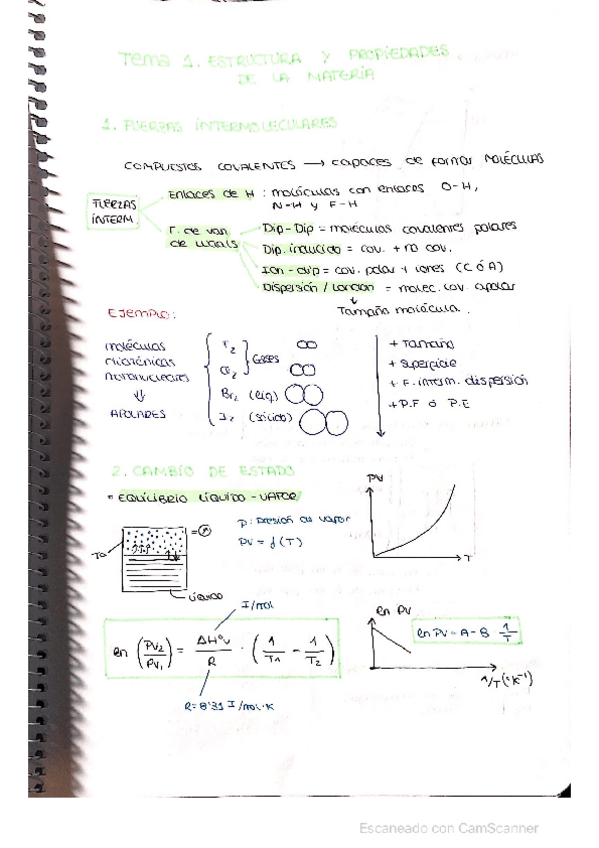 Tema 1. ESTRUCTURA Y PROPIEDADES
DE LA MATERIA
1. FUERZAS INTERMOLECULARES
COMPUESTOS COVALENTES → capaces de formar MOLÉCULAS
FUERZAS INTERM.
Enlaces de H : moléculas con enlaces O-H,
N-H y F-H
F. de van de Waals
Dip-Dip = moléculas covalentes polares
Dip. inducido = cov. + no cov.
Ion-dip = cov. polar + iones (C ó A)
Dispersión / London = molec. cov. apolar
↓
Tamaño molécula.
EJEMPLO:
moléculas
diatómicas
mononucleares
⇓
APOLARES
F2
Cl2
Gases
Br2 (líq)
I2 (sólido)
+ Tamaño
+ superficie
+ F. interm. dispersión
+ P.F ó P.E
2. CAMBIO DE ESTADO
- EQUILIBRIO LÍQUIDO-VAPOR
P: Presión de vapor
PV = f(T)
Tª
LÍQUIDO
PV
T
J/mol
ln (PV2/PV1) = ΔHºv/R · (1/T1 - 1/T2)
R=8'31 J/mol·K
ln PV
ln PV = A - B · 1/T
1/T (K⁻¹)
Escaneado con CamScanner